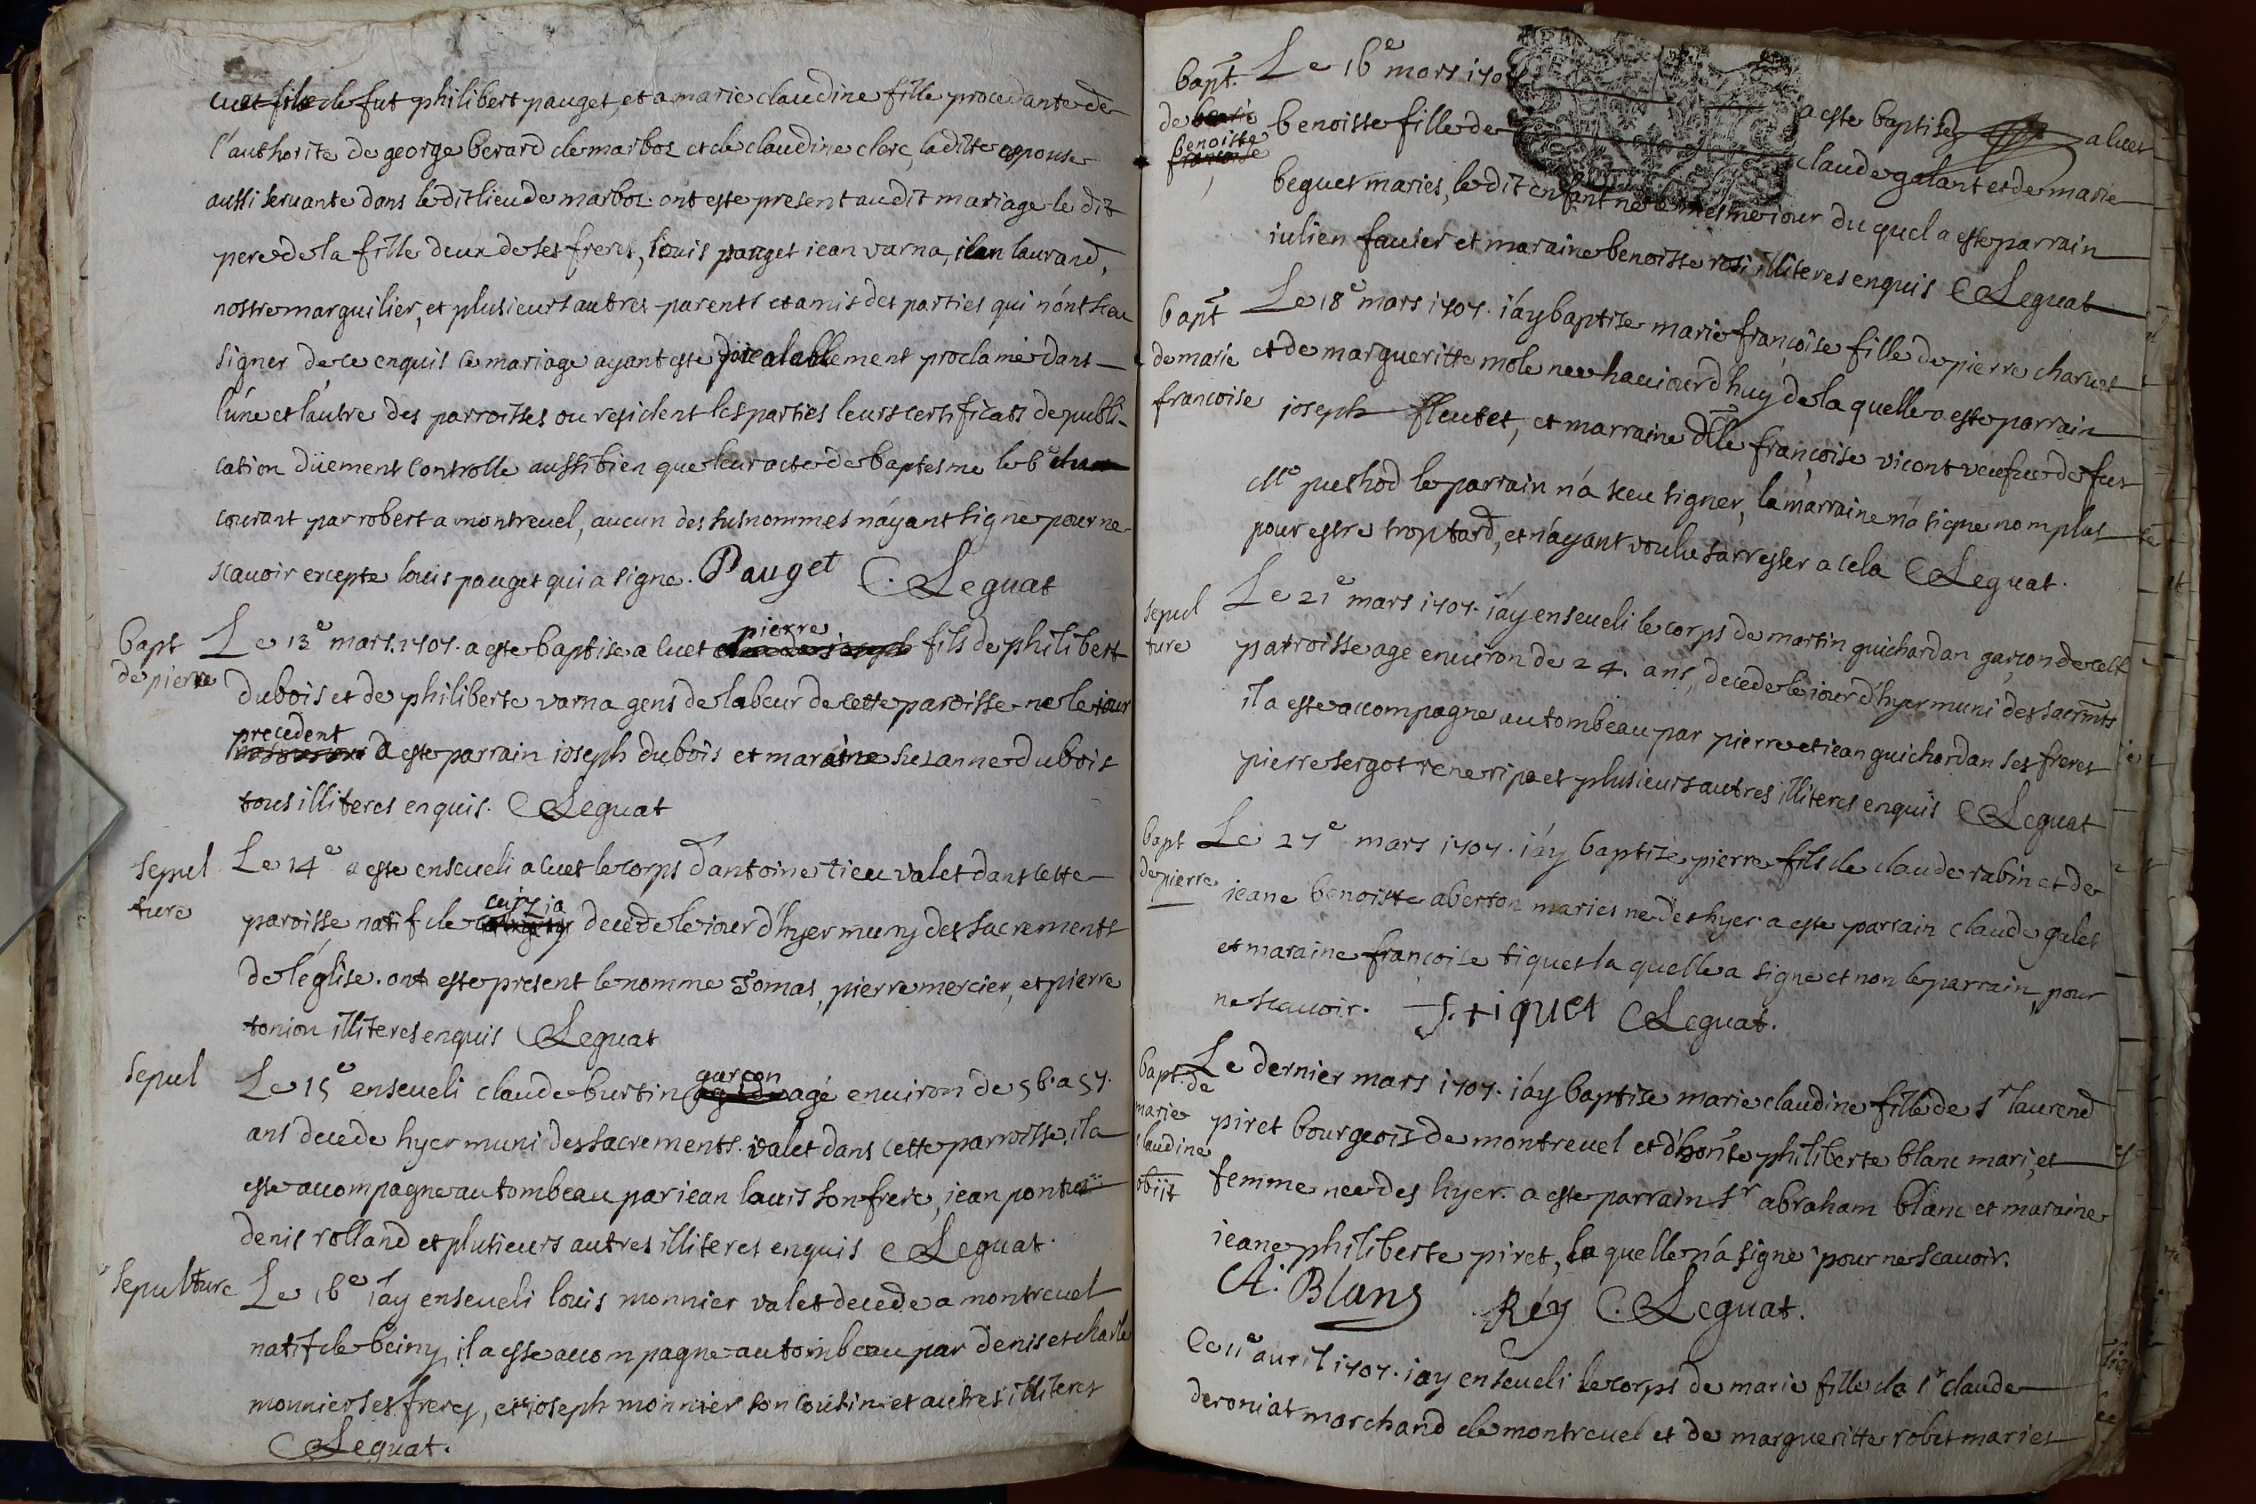 cuet fils de fut philibert pauget, et a marie claudine fille procedante de
l'authorite de george berard de marbos et de claudine clerc, la dite espouse
aussi servante dans le dit lieu de marbos. ont este present au dit mariage le dit
pere de la fille deux de ses freres, louis pauget iean varna, iean laurand,
nostre marguilier, et plusieurs autres parents et amis des parties qui n'ont sceu
signer de ce enquis le mariage ayant este prealablement proclamé dans
l'une et l'autre des parroisses ou resident les parties leurs certificats de publi-
cation düement controlle aussi bien que leur acte de baptesme le 6e du
courant par robert a montrevel, aucun des susnommes n'ayant signé pour ne
scavoir excepte louis pauget qui a signe. Pauget C. Leguat
bapt
de pierre
Le 13e mars. 1707. a este baptise a cuet pierre fils de philibert
dubois et de philiberte varna gens de labeur de cette paroisse ne le iour
precedent a este parrain ioseph dubois et maraine susanne dubois
tous illiteres enquis. C Leguat
sepul
ture
Le 14e a este enseveli a cuet le corps d'antoine tieu valet dans cette
paroisse natif de cuizia decede le iour d'hyer muny des sacrements
de l'eglise. ont este present le nomme Tomas, pierre mercier, et pierre
tonion illiteres enquis C Leguat
sepul
Le 15e enseveli claude burtin garçon agé environ de 56. a 57.
ans decede hyer muni des sacrements. valet dans cette parroisse, il a
este accompagne au tombeau par iean louis son frere, iean pontus
denis rolland et plusieurs autres illiteres enquis C Leguat.
sepulture
Le 16e i'ay enseveli louis monnier valet decede a montrevel
natif de beiny, il a este accompagne au tombeau par denis et charle
monnier ses freres, et ioseph monnier son cousin et autres illiteres
C Leguat.
bapt.
de
benoiste
francoise
Le 16e mars 1707 a este baptisé a cuet
benoiste fille de claude galant et de marie
beguet maries, le dit enfant ne le mesme iour du quel a este parrain
iulien favier et maraine benoiste rosi illiteres enquis C Leguat
bapt
de marie
francoise
Le 18e mars 1707. i'ay baptise marie françoise fille de pierre charvet
et de margueritte mole nee hauiourd'huy de la quelle a este parrain
ioseph fleutet, et marraine dlle françoise vicont veufve de fut
Me puthod le parrain n'a sceu signer, la marraine n'a signe nomplus
pour estre trop tard, et n'ayant voulu s'arrester a cela C Leguat.
sepul
ture
Le 21e mars 1707. i'ay enseveli le corps de martin guichardan garçon de cette
parroisse age environ de 24. ans, decede le iour d'hyer muni des sacrmts
il a este accompagne au tombeau par pierre et iean guichardan ses freres
pierre sergot rene ripe et plusieurs autres illiteres enquis C Leguat
bapt
de pierre
Le 27e mars 1707. i'ay baptise pierre fils de claude rabin et de
ieane benoiste aberton maries ne des hyer a este parrain claude galet
et maraine françoise tiquet la quelle a signe et non le parrain pour
ne scavoir. f. tiquet C Leguat.
bapt. de
marie
claudine
obiit
Le dernier mars 1707. i'ay baptise marie claudine fille de sr laurend
piret bourgeois de montrevel et d'honste philiberte blanc mari, et
femme nee des hyer. a este parrain sr abraham blanc et maraine
ieane philiberte piret, la quelle n'a signe pour ne scavoir.
A. Blanc Rey C. Leguat.
Ce 11e avril 1707. i'ay enseveli le corps de marie fille de sr claude
deroniat marchand de montrevel et de margueritte robet maries